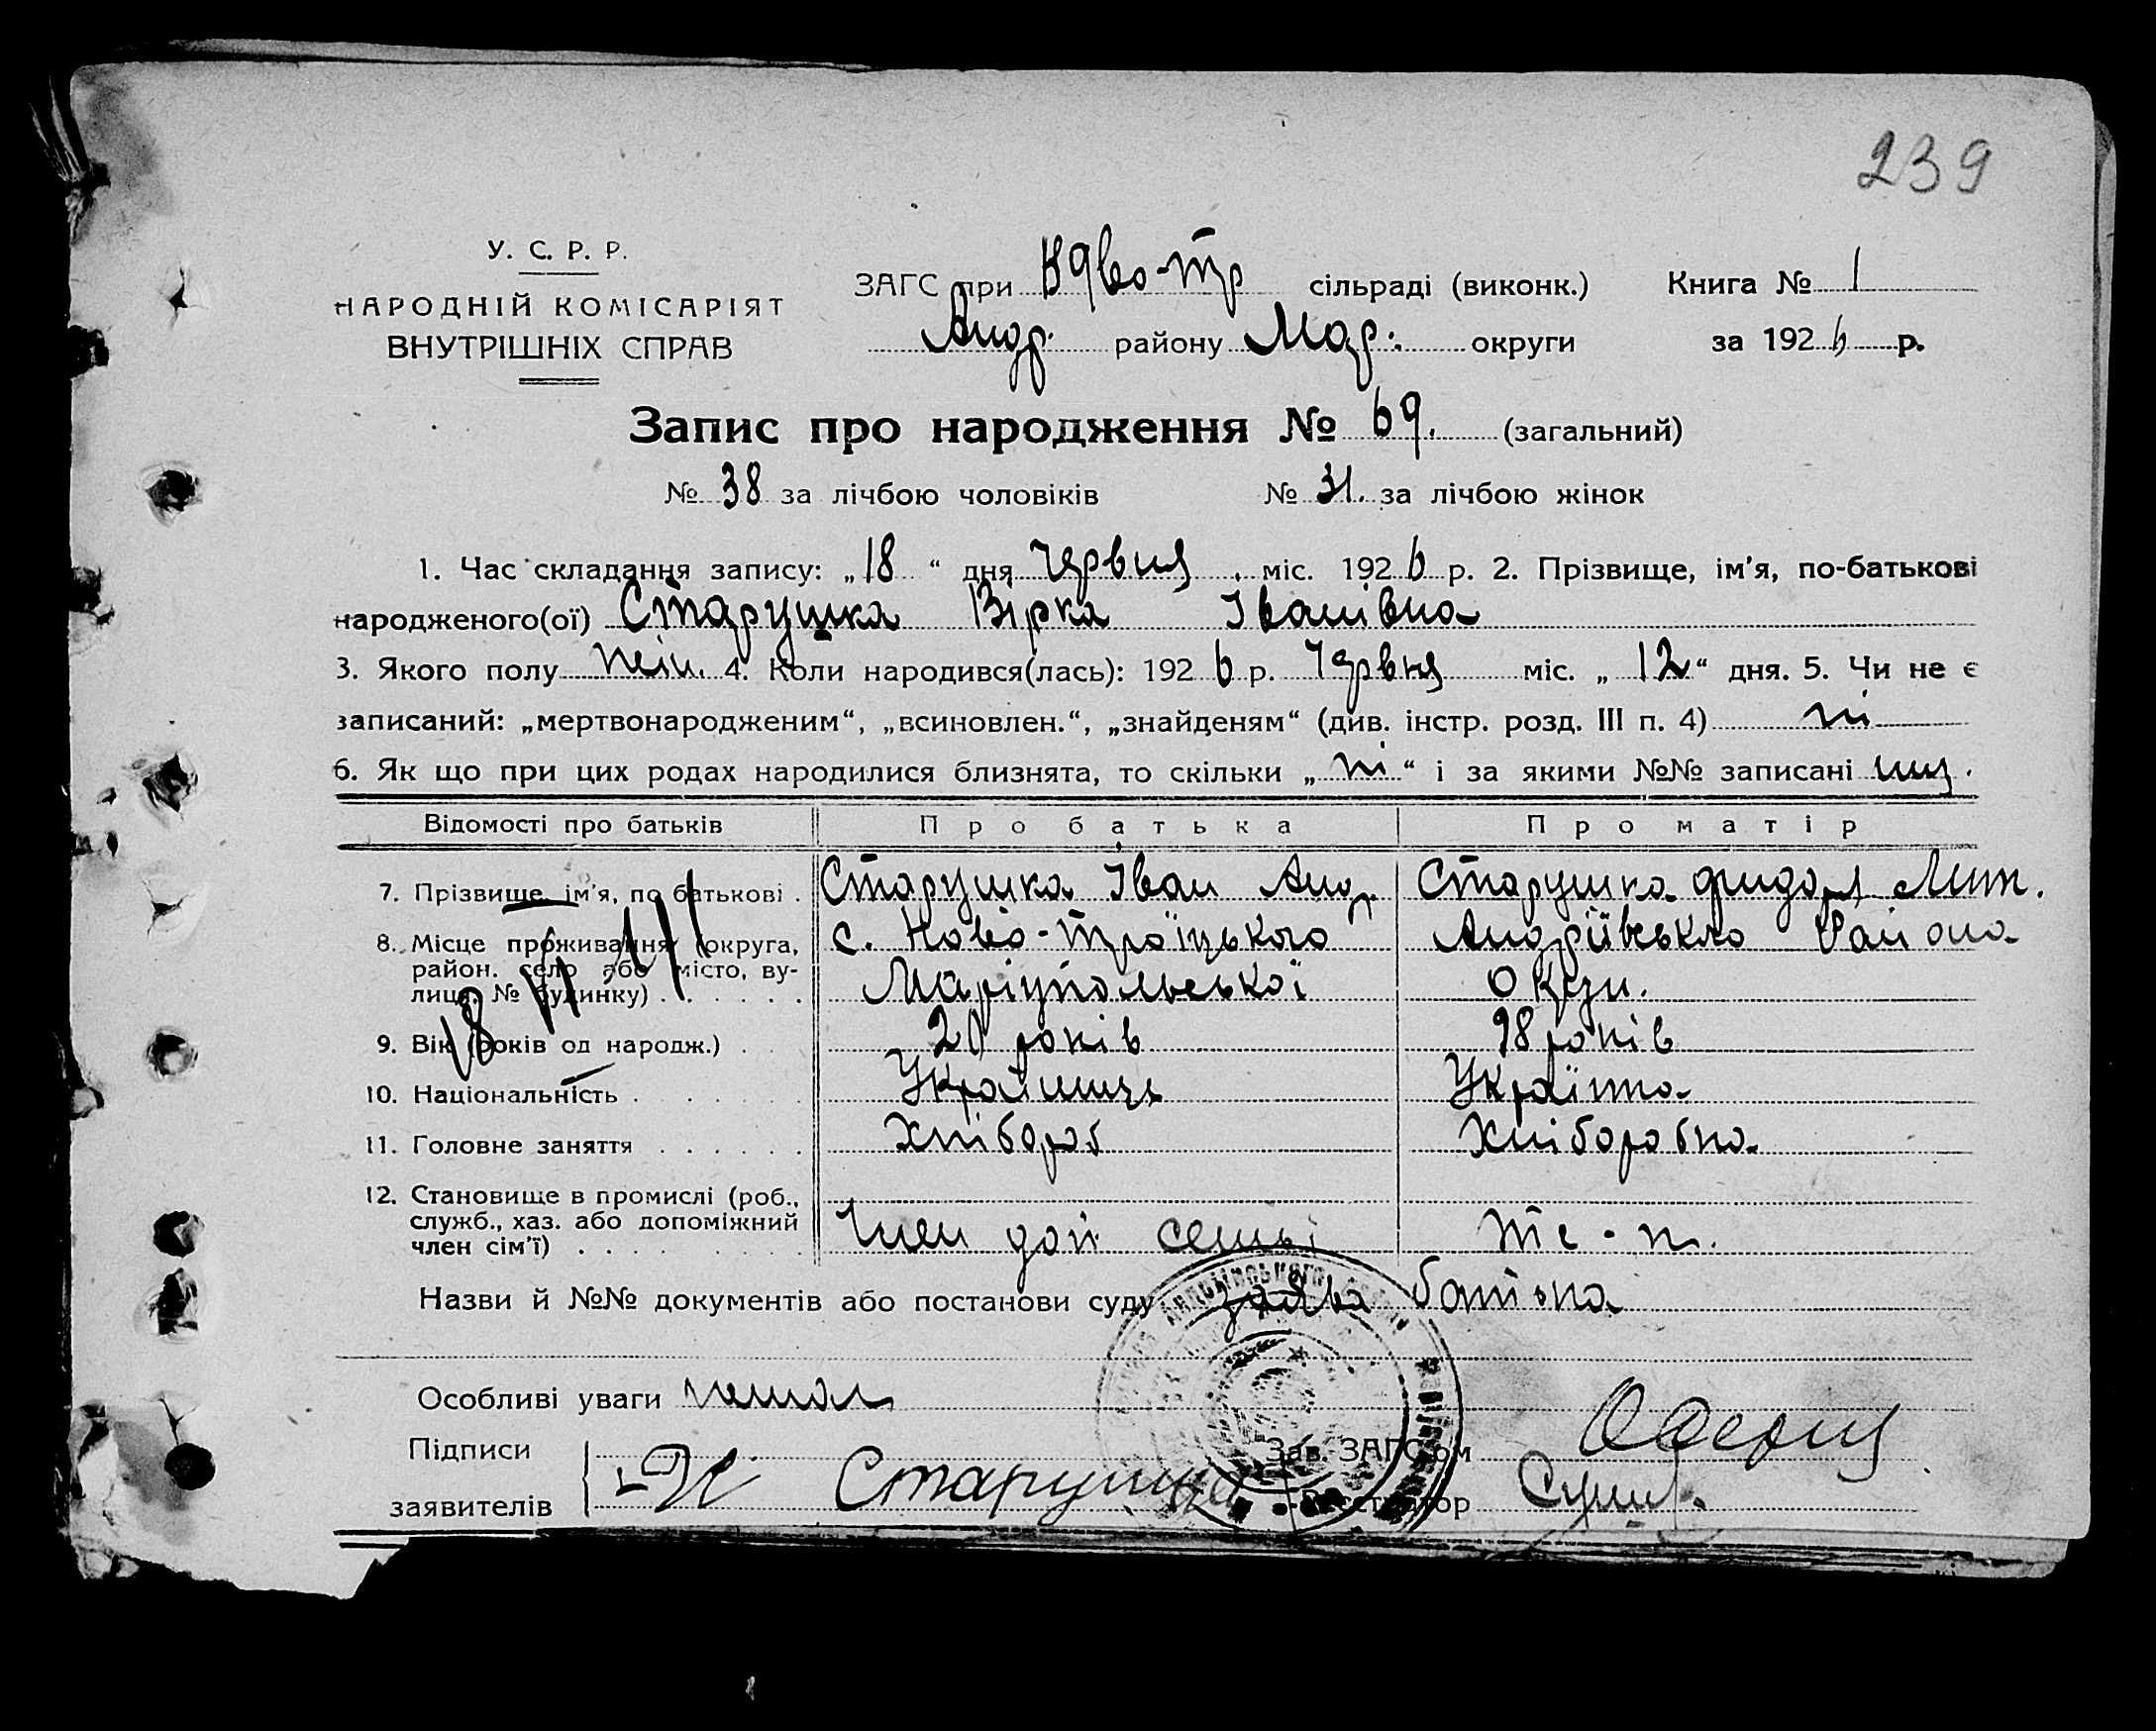 239
У. С. Р. Р.
НАРОДНІЙ КОМІСАРІЯТ
ВНУТРІШНІХ СПРАВ
ЗАГС при сільраді (виконк.) Книга № 1
Андр. району Мар: округи за 1926 р.
Запис про народження № 69. (загальний)
№ 38 за лічбою чоловіків № 31. за лічбою жінок
1. Час складання запису: „18“ дня червня міс. 1926 р. 2. Прізвище, ім'я, по-батькові
народженого(ої) Старушка Вірка Іванівна
3. Якого полу жін. 4. Коли народився(лась): 1926 р. Червня міс. „12“ дня. 5. Чи не є
записаний: „мертвонародженим“, „всиновлен.“, „знайденям“ (див. інстр. розд. III п. 4) ні
6. Як що при цих родах народилися близнята, то скільки „ні“ і за якими №№ записані
Відомості про батьків Про батька Про матір
7. Прізвище, ім'я, по батькові . Старушка Іван Анд. Старушка Мит.
8. Місце проживання (округа, с. Ново-Троїцького Андріївського Района
район, село або місто, ву-
лиця, № будинку) . . . . . . Маріупольської Окру.
9. Вік (років од народж.) . . 20 років 18 років
18 VI 41
10. Національність . . . . . . . Українець Українка
11. Головне заняття . . . . . . Хлібороб Хліборобка
12. Становище в промислі (роб.,
служб., хаз. або допоміжний
член сім'ї) . . . . . . . . . Член доп семьі те-ж.
Назви й №№ документів або постанови суду заява батька
Особливі уваги немає
Підписи Зав. ЗАГС'ом
заявителів Старушка Реєстратор